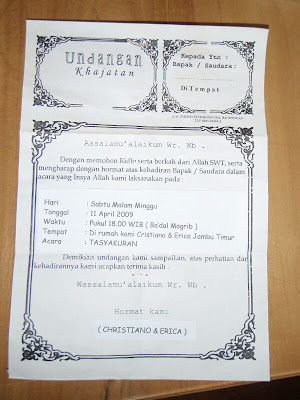 Undangan
Khajatan
Kepada Ytn :
Bapak / Saudara :
Di Tempat
Assalamu'alaikum Wr. Wb .
Dengan memohon Ridlo serta berkah dari Allah SWT, serta
mengharap dengan hormat atas kehadiran Bapak / Saudara dalam
acara yang Insya Allah kami laksanakan pada :
Hari : Sabtu Malam Minggu
Tanggal : 11 April 2009
Waktu : Pukul 18.00 WIB ( Ba'dal Magrib )
Tempat : Di rumah kami Cristiano & Erica Jambu Timur
Acara : TASYAKURAN
Demikian undangan kami sampaikan, atas perhatian dan
kehadirannya kami ucapkan terima kasih .
Wassalamu'alaikum Wr. Wb .
Hormat kami
( CHRISTIANO & ERICA )